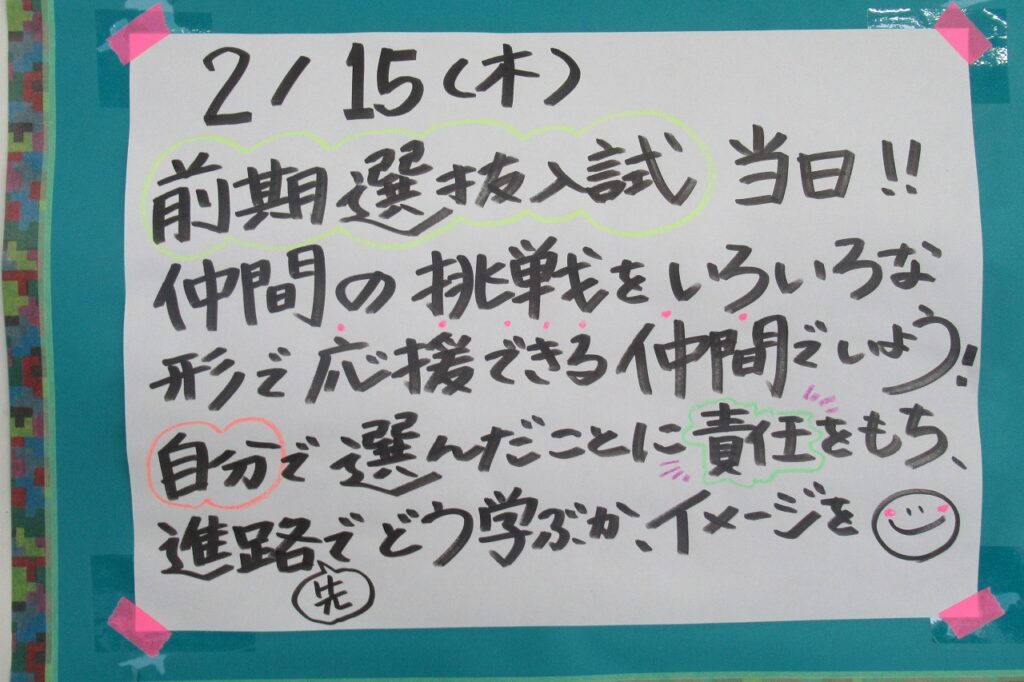 2/15(木)
前期選抜入試 当日!!
仲間の挑戦をいろいろな
形で応援できる仲間でいよう!
自分で選んだことに責任をもち、
進路先でどう学ぶか、イメージを